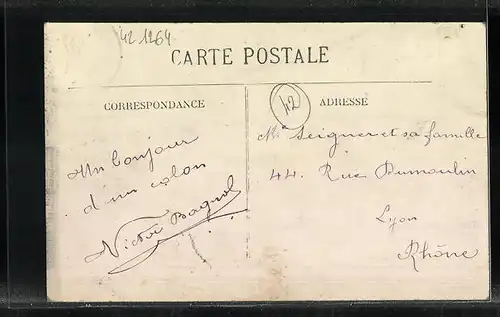 42 1264
CARTE POSTALE
CORRESPONDANCE
42
ADRESSE
Un bonjour
d'un colon
Victor Bagnol
Mr Seigner et sa famille
44. Rue Dumoulin
Lyon
Rhône